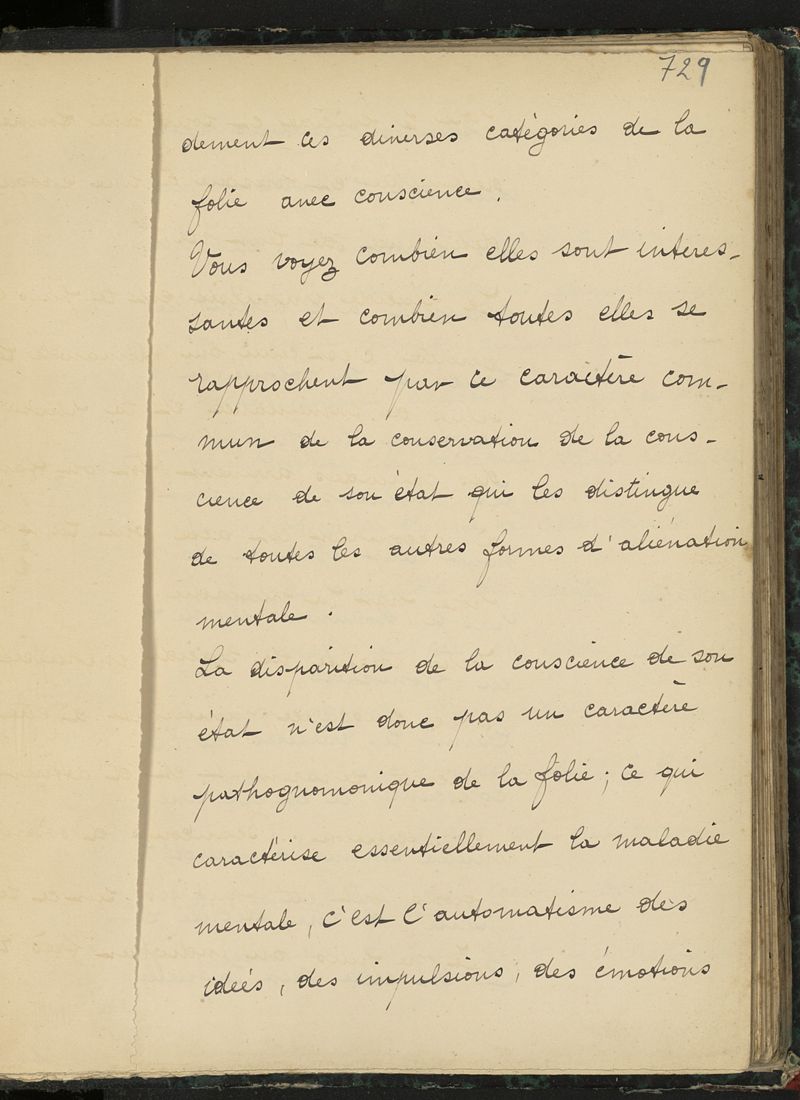 729
dement ces diverses catégories de la
folie avec conscience.
Vous voyez combien elles sont intéres-
santes et combien toutes elles se
rapprochent par ce caractère com-
mun de la conservation de la cons-
cience de son état qui les distingue
de toutes les autres formes d'aliénation
mentale.
La disparition de la conscience de son
état n'est donc pas un caractère
pathognomonique de la folie; ce qui
caractérise essentiellement la maladie
mentale, c'est l'automatisme des
idées, des impulsions, des émotions